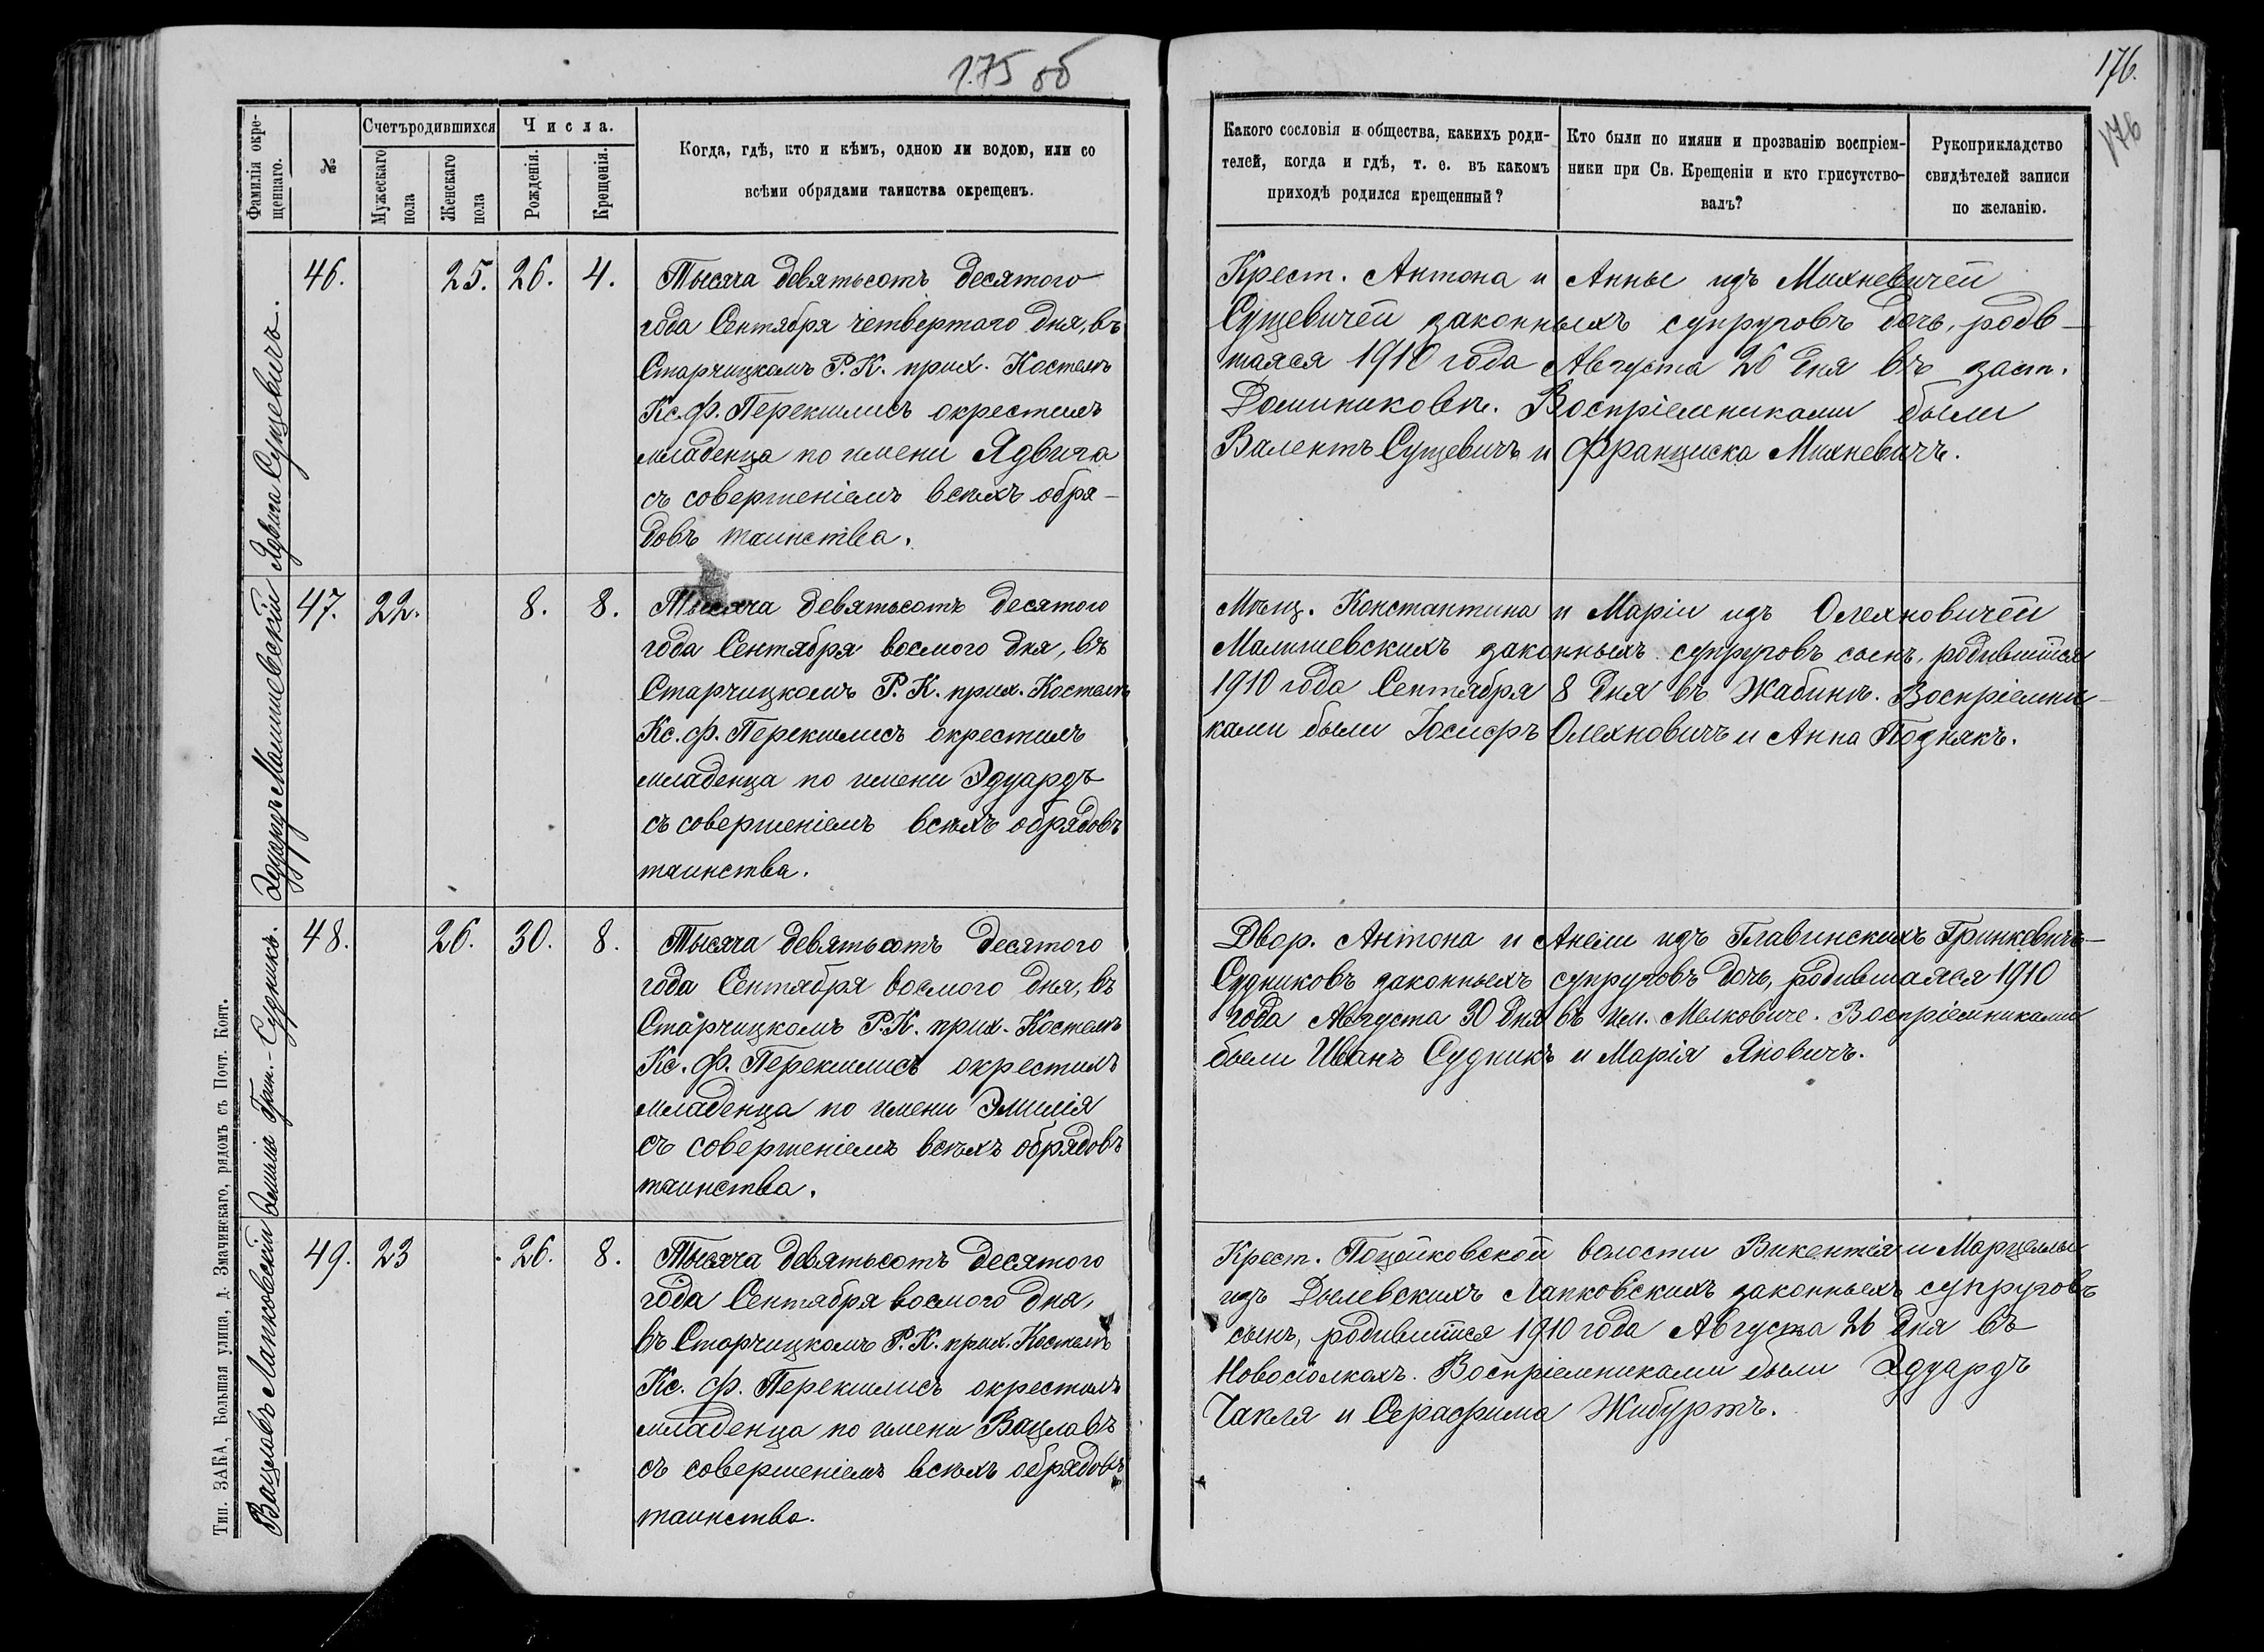 175 об
Фамилія окре-
щеннаго.
№
Счетъ родившихся
Мужескаго
пола
Женскаго
пола
Числа.
Рожденія.
Крещенія.
Когда, гдѣ, кто и кѣмъ, одною ли водою, или со
всѣми обрядами таинства окрещенъ.
Ядвига Сущевичъ.
46.
25.
26.
4.
Тысяча девятьсотъ десятого
года Сентября четвертого дня, въ
Старчицкомъ Р. К. прих. Костелѣ
Кс. Ф. Перекшлисъ окрестилъ
младенца по имени Ядвига
съ совершеніемъ всѣхъ обря-
довъ таинства.
Эдуардъ Малишевскій
47.
22.
8.
8.
Тысяча девятьсотъ десятого
года Сентября восмого дня, въ
Старчицкомъ Р. К. прих. Костелѣ
Кс. Ф. Перекшлисъ окрестилъ
младенца по имени Эдуардъ
съ совершеніемъ всѣхъ обрядовъ
таинства.
Эмилія Грин.-Судникъ.
48.
26.
30.
8.
Тысяча девятьсотъ десятого
года Сентября восмого дня, въ
Старчицкомъ Р. К. прих. Костелѣ
Кс. Ф. Перекшлисъ окрестилъ
младенца по имени Эмилія
съ совершеніемъ всѣхъ обрядовъ
таинства.
Вацлавъ Лапковскій
49.
23
26.
8.
Тысяча девятьсотъ десятого
года Сентября восмого дня,
въ Старчицкомъ Р. К. прих. Костелѣ
Кс. Ф. Перекшлисъ окрестилъ
младенца по имени Вацлавъ
съ совершеніемъ всѣхъ обрядовъ
таинства.
Тип. ЗАКА, Большая улица, д. Змачинскаго, рядомъ съ Почт. Конт.
176.
176
Какого сословія и общества, какихъ роди-
телей, когда и гдѣ, т. е. въ какомъ
приходѣ родился крещенный?
Кто были по имяни и прозванію воспріем-
ники при Св. Крещеніи и кто присутство-
валъ?
Рукоприкладство
свидѣтелей записи
по желанію.
Крест. Антона и Анны изъ Михневичей
Сущевичей законныхъ супруговъ дочь, родв-
шаяся 1910 года Августа 26 дня въ заст.
Доминиковѣ. Воспріемниками были
Валентъ Сущевичъ и Франциска Михневичъ.
Мѣщ. Константина и Маріи изъ Олехновичей
Малишевскихъ законныхъ супруговъ сынъ, родившійся
1910 года Сентября 8 дня въ Жабинѣ. Воспріемни-
ками были Іосифъ Олехновичъ и Анна Познякъ.
Двор. Антона и Анели изъ Главинскихъ Гринкевичъ-
Судниковъ законныхъ супруговъ дочь, родившаяся 1910
года Августа 30 дня въ им. Мелковиче. Воспріемниками
были Иванъ Судникъ и Марія Яновичъ.
Крест. Поцейковской волости Викентія и Марцеллы
изъ Дылевскихъ Лапковскихъ законныхъ супруговъ
сынъ, родившійся 1910 года Августа 26 дня въ
Новосіолкахъ. Воспріемниками были Эдуардъ
Чапля и Серафима Жибуртъ.